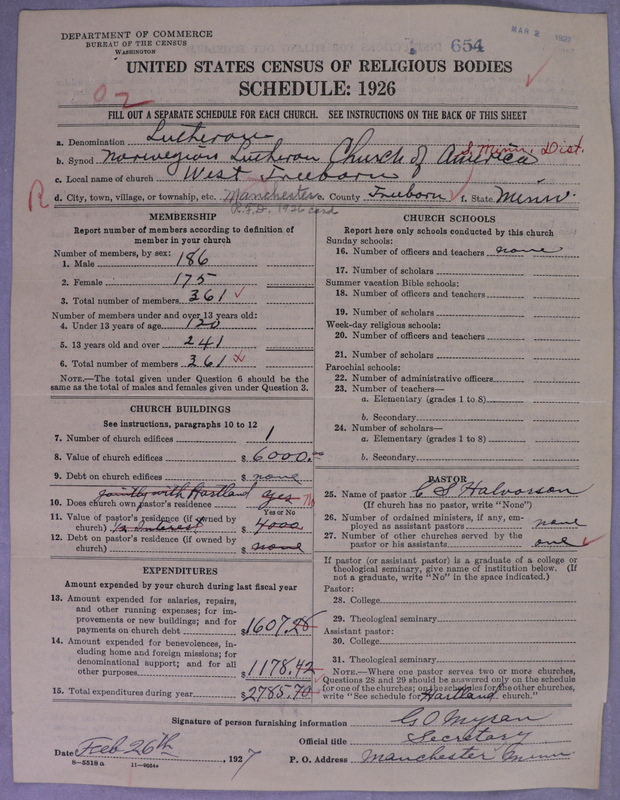 DEPARTMENT OF COMMERCE
BUREAU OF THE CENSUS
WASHINGTON
654
MAR 2 1927
UNITED STATES CENSUS OF RELIGIOUS BODIES
SCHEDULE: 1926
02
FILL OUT A SEPARATE SCHEDULE FOR EACH CHURCH. SEE INSTRUCTIONS ON THE BACK OF THIS SHEET
a. Denomination Lutheran
b. Synod Norwegian Lutheran Church of America S. Minn. Dist.
c. Local name of church West Freeborn
R d. City, town, village, or township, etc. Manchester e. County Freeborn f. State Minn.
R.F.D. 1926 card
MEMBERSHIP
Report number of members according to definition of
member in your church
Number of members, by sex:
1. Male 186
2. Female 175
3. Total number of members 361
Number of members under and over 13 years old:
4. Under 13 years of age 120
5. 13 years old and over 241
6. Total number of members 361
NOTE.—The total given under Question 6 should be
the same as the total of males and females given under Question 3.
CHURCH BUILDINGS
See instructions, paragraphs 10 to 12
7. Number of church edifices 1
8. Value of church edifices $ 6000.00
9. Debt on church edifices $ none
jointly with Hartland
10. Does church own pastor's residence yes
Yes or No
11. Value of pastor's residence (if owned by
church) ½ Interest $ 4000
12. Debt on pastor's residence (if owned by
church) $ none
EXPENDITURES
Amount expended by your church during last fiscal year
13. Amount expended for salaries, repairs,
and other running expenses; for im-
provements or new buildings; and for
payments on church debt $1607.28
14. Amount expended for benevolences, in-
cluding home and foreign missions; for
denominational support; and for all
other purposes $1178.42
15. Total expenditures during year $2785.70
CHURCH SCHOOLS
Report here only schools conducted by this church
Sunday schools:
16. Number of officers and teachers none
17. Number of scholars
Summer vacation Bible schools:
18. Number of officers and teachers
19. Number of scholars
Week-day religious schools:
20. Number of officers and teachers
21. Number of scholars
Parochial schools:
22. Number of administrative officers
23. Number of teachers—
a. Elementary (grades 1 to 8)
b. Secondary
24. Number of scholars—
a. Elementary (grades 1 to 8)
b. Secondary
PASTOR
25. Name of pastor C S Halvorson
(If church has no pastor, write "None")
26. Number of ordained ministers, if any, em-
ployed as assistant pastors none
27. Number of other churches served by the
pastor or his assistants one
If pastor (or assistant pastor) is a graduate of a college or
theological seminary, give name of institution below. (If
not a graduate, write "No" in the space indicated.)
Pastor:
28. College
29. Theological seminary
Assistant pastor:
30. College
31. Theological seminary
NOTE.—Where one pastor serves two or more churches,
Questions 28 and 29 should be answered only on the schedule
for one of the churches; on the schedules for the other churches,
write "See schedule for Hartland church."
Signature of person furnishing information G O Myran
Official title Secretary
Date Feb 26th, 1927 P. O. Address Manchester Minn
8—5518 a 11—9054